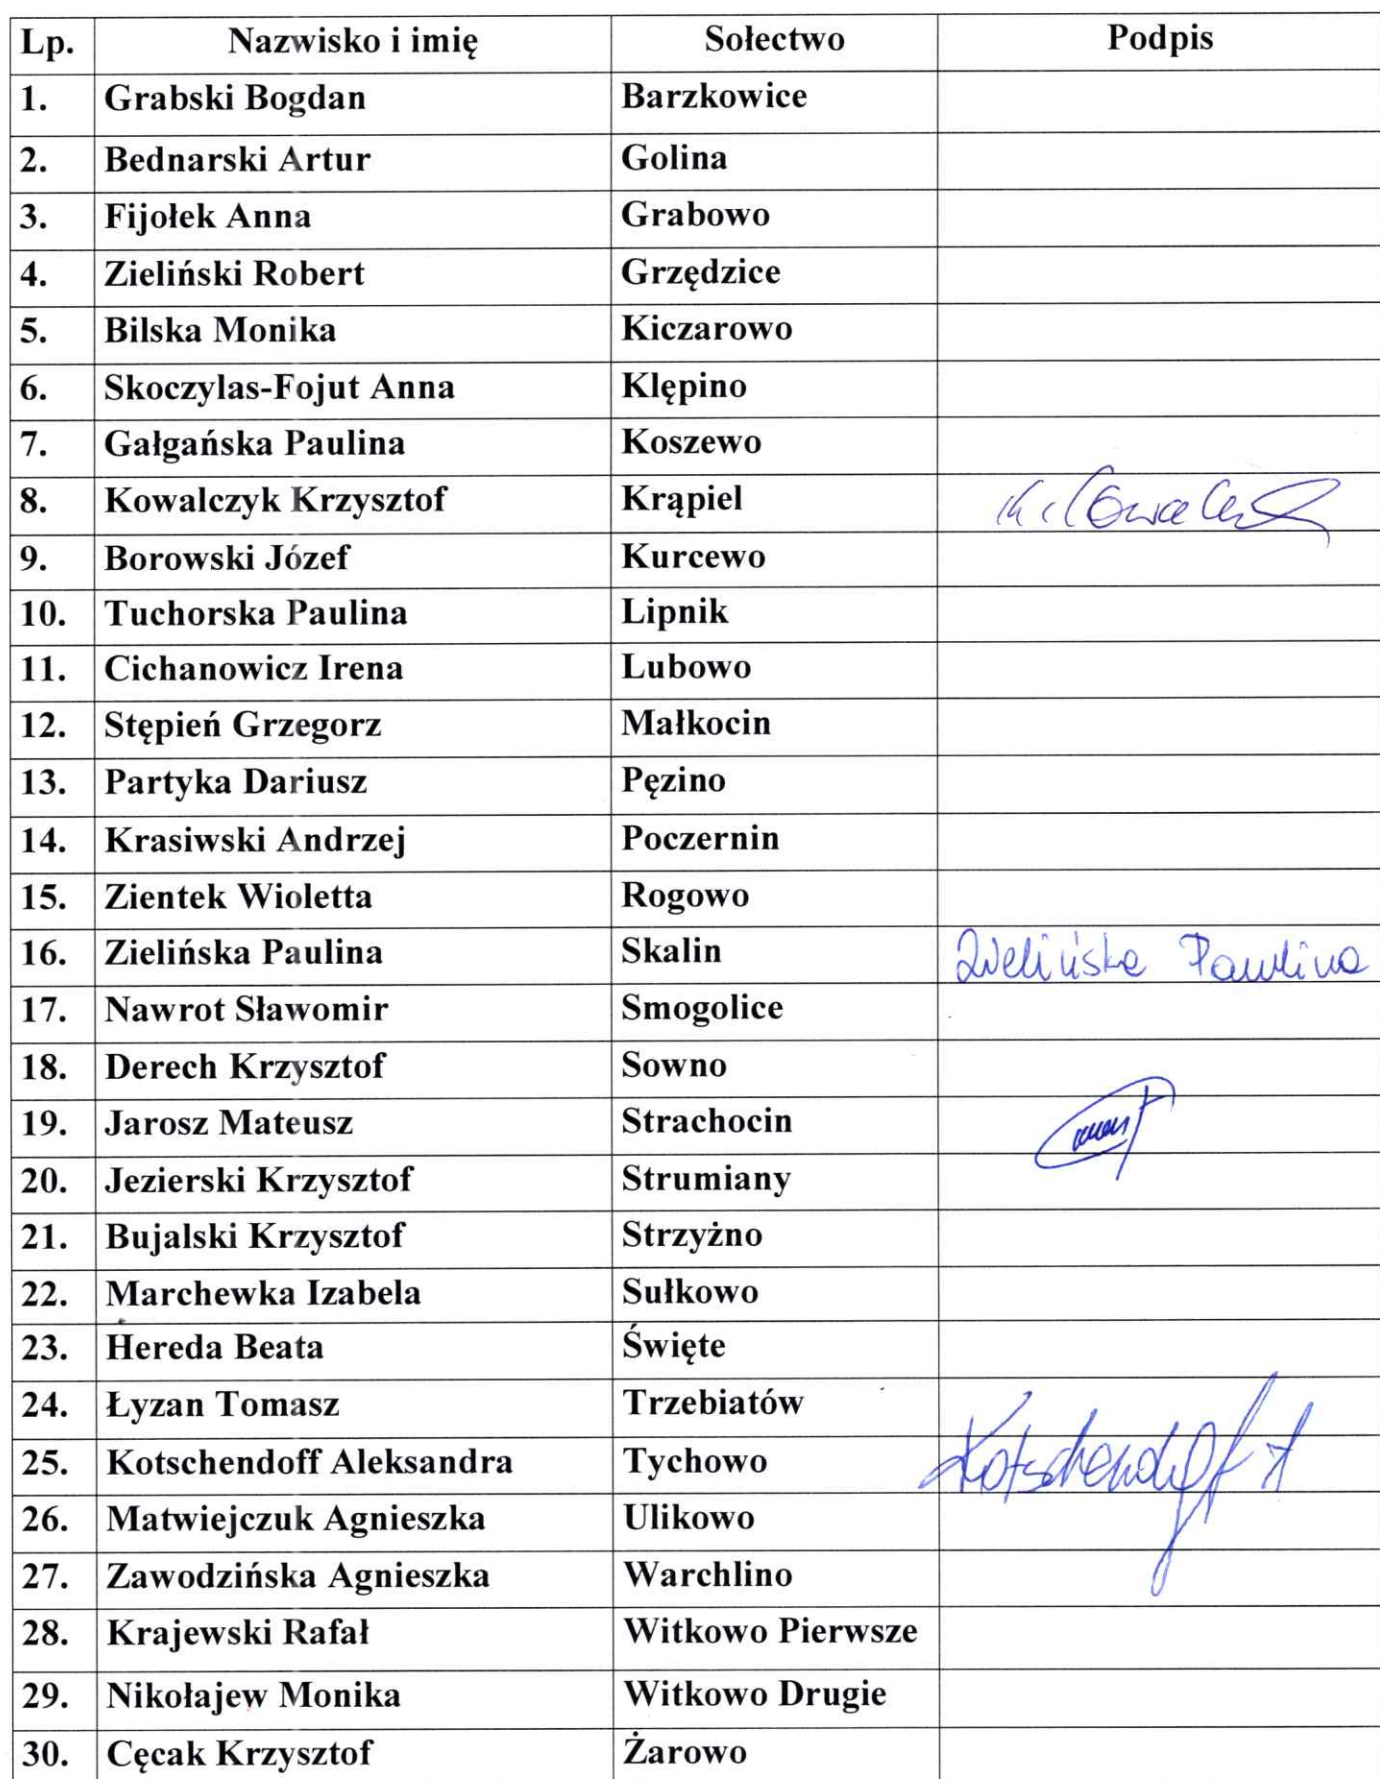 Lp. Nazwisko i imię Sołectwo Podpis
1. Grabski Bogdan Barzkowice
2. Bednarski Artur Golina
3. Fijołek Anna Grabowo
4. Zieliński Robert Grzędzice
5. Bilska Monika Kiczarowo
6. Skoczylas-Fojut Anna Klępino
7. Gałgańska Paulina Koszewo
8. Kowalczyk Krzysztof Krąpiel
9. Borowski Józef Kurcewo
10. Tuchorska Paulina Lipnik
11. Cichanowicz Irena Lubowo
12. Stępień Grzegorz Małkocin
13. Partyka Dariusz Pęzino
14. Krasiwski Andrzej Poczernin
15. Zientek Wioletta Rogowo
16. Zielińska Paulina Skalin Zielińska Paulina
17. Nawrot Sławomir Smogolice
18. Derech Krzysztof Sowno
19. Jarosz Mateusz Strachocin
20. Jezierski Krzysztof Strumiany
21. Bujalski Krzysztof Strzyżno
22. Marchewka Izabela Sułkowo
23. Hereda Beata Święte
24. Łyzan Tomasz Trzebiatów
25. Kotschendoff Aleksandra Tychowo Kotschendoff A
26. Matwiejczuk Agnieszka Ulikowo
27. Zawodzińska Agnieszka Warchlino
28. Krajewski Rafał Witkowo Pierwsze
29. Nikołajew Monika Witkowo Drugie
30. Cęcak Krzysztof Żarowo